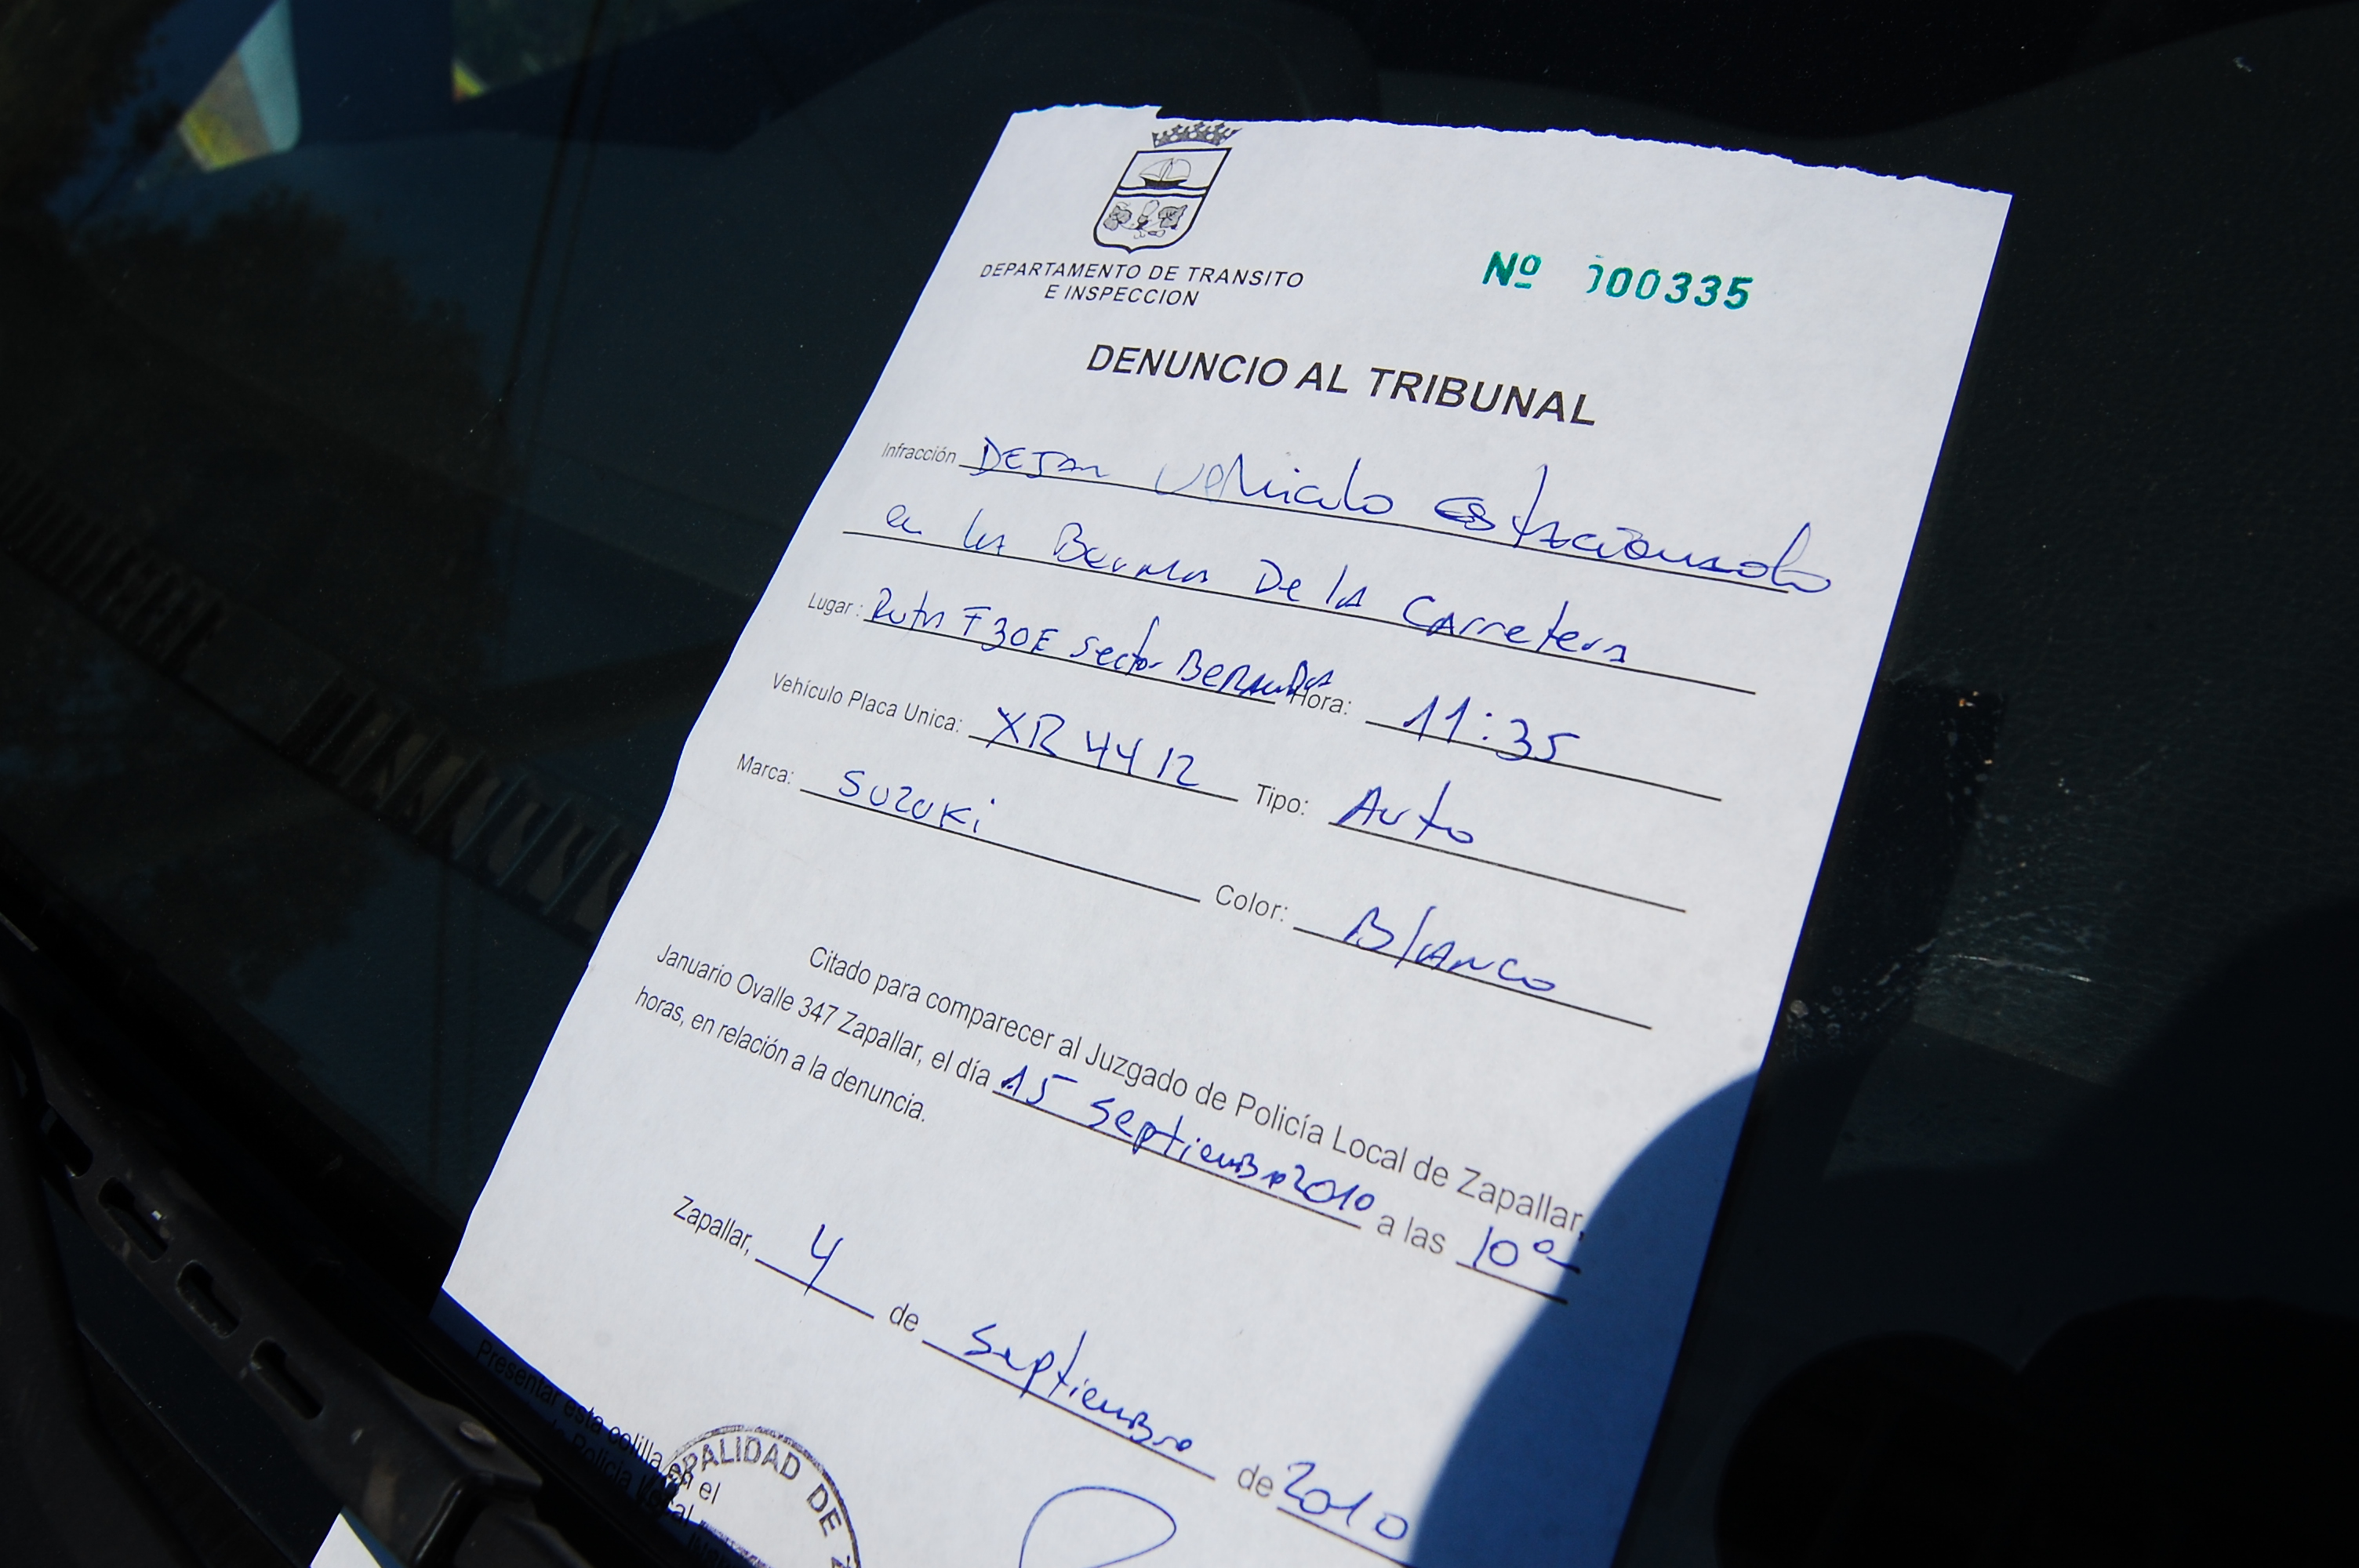 DEPARTAMENTO DE TRANSITO
E INSPECCION
Nº 000335
DENUNCIO AL TRIBUNAL
Infracción DEJAR vehiculo estacionado
en la Berma De la Carretera
Lugar: Ruta F30E sector Hora: 11:35
Vehículo Placa Unica: XR 4412 Tipo: Auto
Marca: SUZUKi Color: Blanco
Citado para comparecer al Juzgado de Policía Local de Zapallar,
Januario Ovalle 347 Zapallar, el día 15 septiembre 2010 a las 10º
horas, en relación a la denuncia.
Zapallar, 4 de septiembre de 2010
Presentar esta colilla en el
de Policía Local
PALIDAD DE